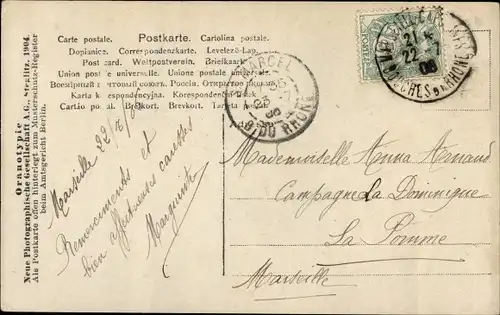 Carte postale. Postkarte. Cartolina postale.
Dopisnice. Correspondenzkarte. Levelező-Lap.
Postcard. Weltpostverein. Briefkaart.
Union postale universelle. Unione postale universale.
Всемірный почтовый союзъ. Россія. Открытое
Karta korespondencyjna. Korespondenční
Cartāo postal. Brefkort. Brevkort. Tarjeta
Oranotypie.
Neue Photographische Gesellschaft A.G., Steglitz. 1904.
Als Postkarte offen hinterlegt zum Musterschutz-Register
beim Amtsgericht Berlin.
MARCEL
B. DU RHONE
22 -7
06
BOUCHES DU RHONE
Marseille 22/7/06
Remerciments et
bien affectueuses caresses
Marguerite
Mademoiselle Anna Arnaud
Campagne La Dominique
La Pomme
Marseille